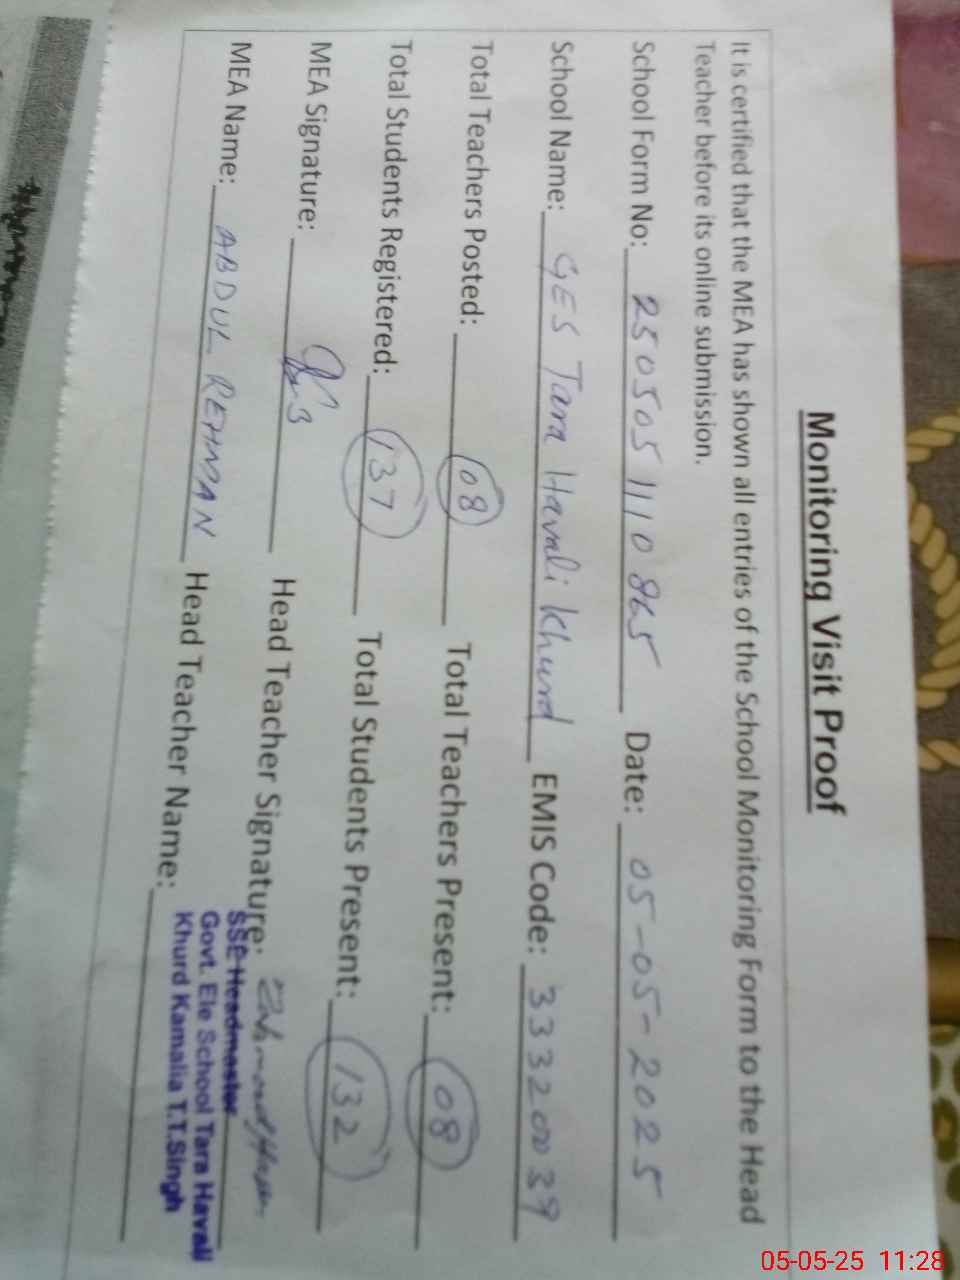 Monitoring Visit Proof
It is certified that the MEA has shown all entries of the School Monitoring Form to the Head
Teacher before its online submission.
School Form No: 2505051110865 Date: 05-05-2025
School Name: GES Tara Havali Khurd EMIS Code: 33320039
Total Teachers Posted: 08 Total Teachers Present: 08
Total Students Registered: 137 Total Students Present: 132
MEA Signature: Head Teacher Signature:
MEA Name: ABDUL REHMAN Head Teacher Name:
SSE Headmaster
Govt. Ele School Tara Havali
Khurd Kamalia T.T.Singh
05-05-25 11:28